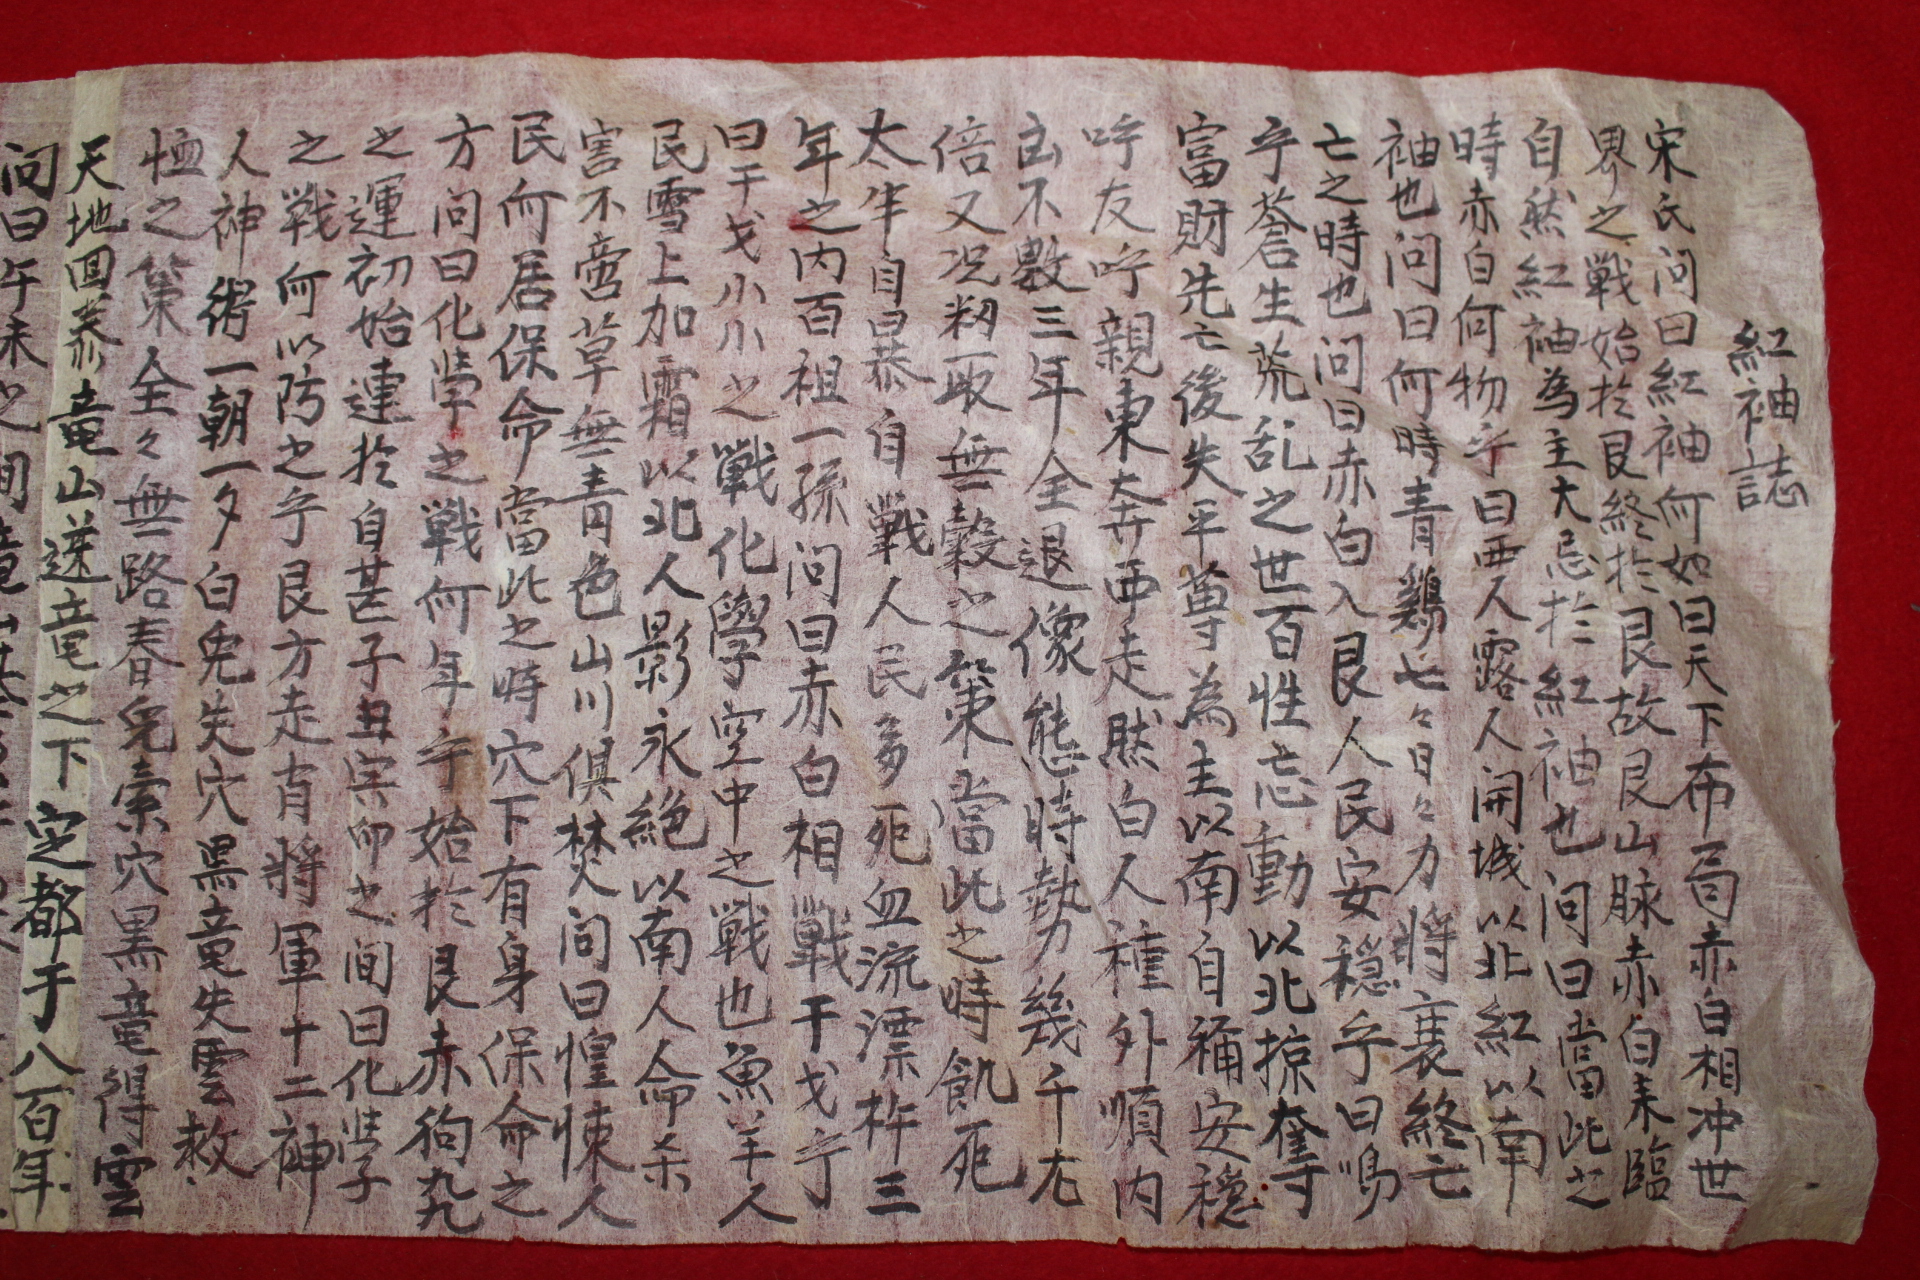 紅袖誌
宋氏问曰紅袖何如曰天下布局赤白相冲世
界之戦始於艮終於艮故艮山脉赤白来臨
自然紅袖為主大忌於紅袖也问曰當此之
時赤白何物乎曰西人露人開城以北紅以南
袖也问曰何時青鷄七々日々力将衰終亡
亡之時也问曰赤白入艮人民安穏乎曰嗚
乎蒼生荒乱之世百性忘動以北掠奪
富財先亡後失平等為主以南自補安穏
呼友呼親東奔西走然白人種外順内
凶不數三年全退像態時勢幾千左
倍又况籾取無穀之策當此之時飢死
太半自暴自戦人民多死血流漂杵三
年之内百祖一孫问曰赤白相戦干戈乎
曰干戈小小之戰化學空中之戦也魚羊人
民雪上加霜以北人影永絶以南人命杀
害不啻草無青色山川俱焚问曰惶悚人
民而居保命當此之時穴下有身保命之
方问曰化学之戦何年乎始於艮赤狗丸
之運初始連於自甚子丑寅卯之间曰化学
之戦何以防之乎艮方走肖将軍十二神
人神術一朝一夕白兎失穴黒竜失雲救
恤之策全々無路春兎索穴黒竜得雲
天地回泰竜山逆竜之下定都于八百年
问曰午未之间竜山